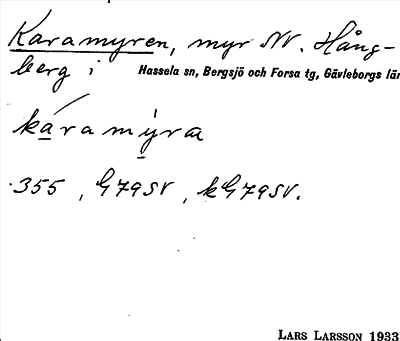 Karamyren, myr NV. Hång-
berg i Hassela sn, Bergsjö och Forsa tg, Gävleborgs län
káramýra
355, G79SV, kG79SV.
LARS LARSSON 1933